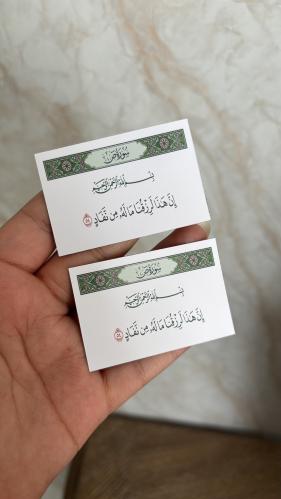 سُورَةُ صٓ
بِسْمِ اللَّهِ الرَّحْمَٰنِ الرَّحِيمِ
إِنَّ هَٰذَا لَرِزْقُنَا مَا لَهُ مِن نَّفَادٍ ٥٤
سُورَةُ صٓ
بِسْمِ اللَّهِ الرَّحْمَٰنِ الرَّحِيمِ
إِنَّ هَٰذَا لَرِزْقُنَا مَا لَهُ مِن نَّفَادٍ ٥٤